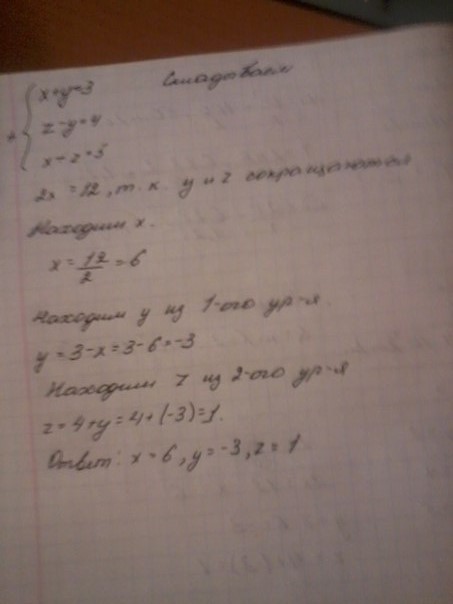 Складываем
x+y=3
+ { z-y=4
x-z=5
2x=12, т.к. y и z сокращаются
Находим x.
x=12/2=6
Находим y из 1-ого ур-я.
y=3-x=3-6=-3
Находим z из 2-ого ур-я
z=4+y=4+(-3)=1.
Ответ: x=6, y=-3, z=1